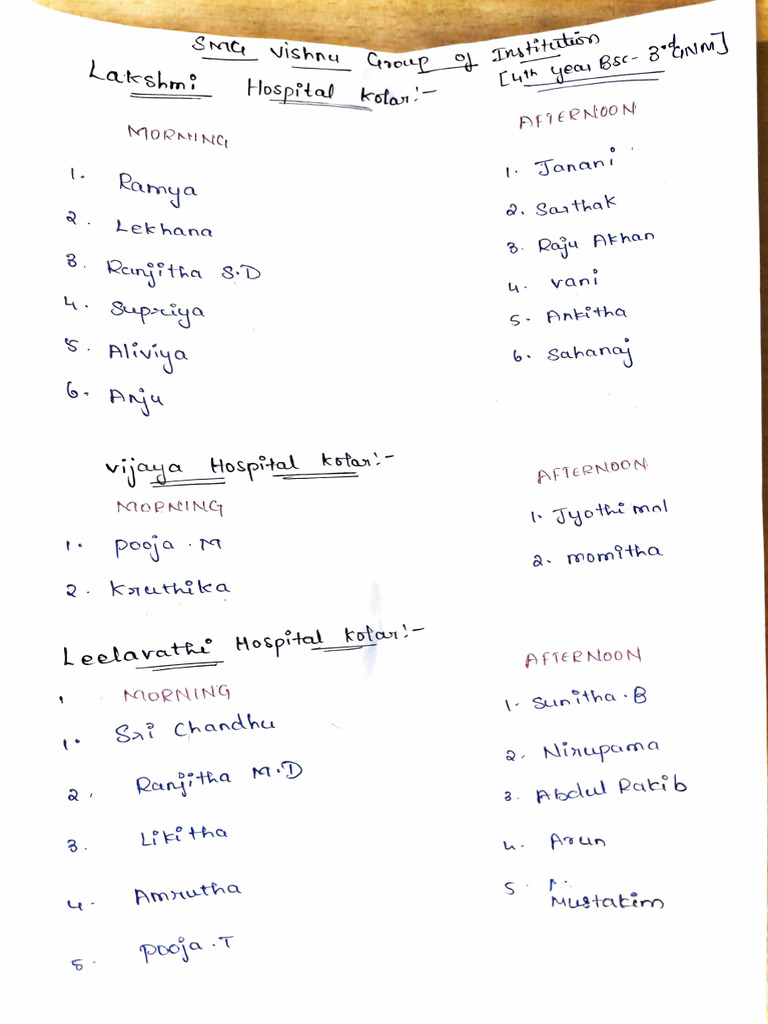 SMG Vishnu Group of Institution
[4th year BSC - 3rd GNM]
Lakshmi Hospital Kolar:-
MORNING
1. Ramya
2. Lekhana
3. Ranjitha S.D
4. Supriya
5. Aliviya
6. Anju
AFTERNOON
1. Janani
2. Sarthak
3. Raju Akhan
4. Vani
5. Ankitha
6. Sahanaj
Vijaya Hospital Kolar:-
MORNING
1. Pooja.M
2. Kruthika
AFTERNOON
1. Jyothi mol
2. Momitha
Leelavathi Hospital Kolar:-
MORNING
1. Sri Chandhu
2. Ranjitha M.D
3. Likitha
4. Amrutha
5. Pooja.T
AFTERNOON
1. Sunitha.B
2. Nirupama
3. Abdul Rakib
4. Arun
5.
Mustakim